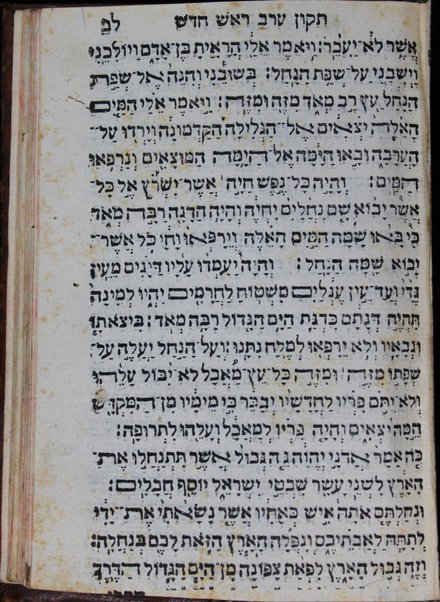 תקון ערב ראש חדש לב
אֲשֶׁר לֹא־יֵעָבֵר: וַיֹּאמֶר אֵלַי הֲרָאִיתָ בֶן־אָדָם וַיּוֹלִכֵנִי
וַיְשִׁבֵנִי עַל־שְׂפַת הַנָּחַל: בְּשׁוּבֵנִי וְהִנֵּה אֶל־שְׂפַת
הַנַּחַל עֵץ רַב מְאֹד מִזֶּה וּמִזֶּה: וַיֹּאמֶר אֵלַי הַמַּיִם
הָאֵלֶּה יוֹצְאִים אֶל־הַגְּלִילָה הַקַּדְמוֹנָה וְיָרְדוּ עַל־
הָעֲרָבָה וּבָאוּ הַיָּמָּה אֶל־הַיָּמָּה הַמּוּצָאִים וְנִרְפְּאוּ
הַמָּיִם: וְהָיָה כָל־נֶפֶשׁ חַיָּה אֲשֶׁר יִשְׁרֹץ אֶל כָּל־
אֲשֶׁר יָבוֹא שָׁם נַחֲלַיִם יִחְיֶה וְהָיָה הַדָּגָה רַבָּה מְאֹד
כִּי בָאוּ שָׁמָּה הַמַּיִם הָאֵלֶּה וְיֵרָפְאוּ וָחָי כֹּל אֲשֶׁר־
יָבוֹא שָׁמָּה הַנָּחַל: וְהָיָה יַעַמְדוּ עָלָיו דַּיָּגִים מֵעֵין
גֶּדִי וְעַד־עֵין עֶגְלַיִם מִשְׁטוֹחַ לַחֲרָמִים יִהְיוּ לְמִינָהּ
תִּהְיֶה דְגָתָם כִּדְגַת הַיָּם הַגָּדוֹל רַבָּה מְאֹד: בִּצֹּאתָו
וּגְבָאָיו וְלֹא יֵרָפְאוּ לְמֶלַח נִתָּנוּ: וְעַל־הַנַּחַל יַעֲלֶה עַל־
שְׂפָתוֹ מִזֶּה וּמִזֶּה כָּל־עֵץ־מַאֲכָל לֹא־יִבּוֹל עָלֵהוּ
וְלֹא־יִתֹּם פִּרְיוֹ לָחֳדָשָׁיו יְבַכֵּר כִּי מֵימָיו מִן־הַמִּקְדָּשׁ
הֵמָּה יוֹצְאִים וְהָיָה פִרְיוֹ לְמַאֲכָל וְעָלֵהוּ לִתְרוּפָה:
כֹּה אָמַר אֲדֹנָי יְהוִֹה גֵּה גְבוּל אֲשֶׁר תִּתְנַחֲלוּ אֶת־
הָאָרֶץ לִשְׁנֵי עָשָׂר שִׁבְטֵי יִשְׂרָאֵל יוֹסֵף חֲבָלִים:
וּנְחַלְתֶּם אוֹתָהּ אִישׁ כְּאָחִיו אֲשֶׁר נָשָׂאתִי אֶת־יָדִי
לְתִתָּהּ לַאֲבֹתֵיכֶם וְנָפְלָה הָאָרֶץ הַזֹּאת לָכֶם בְּנַחֲלָה:
וְזֶה גְּבוּל הָאָרֶץ לִפְאַת צָפוֹנָה מִן־הַיָּם הַגָּדוֹל הַדֶּרֶךְ